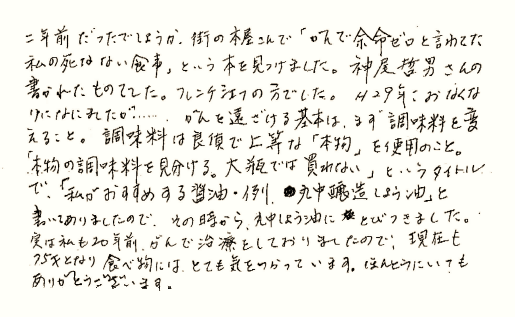 二年前だったでしょうか、街の本屋さんで「がんで余命ゼロと言われた
私の死なない食事」という本を見つけました。神尾哲男さんの
書かれたものでした。フレンチシェフの方でした。H29年におなくな
りになられたが…… がんを遠ざける基本は、まず調味料を変
えること。調味料は良質で上等な「本物」を使用のこと。
「本物の調味料を見分ける。大瓶では買わない」というタイトル
で、「私がおすすめする醤油・例 丸中醸造しょう油」と
書いてありましたので、その時から、丸中しょう油にとびつきました。
実は私も20年前、がんで治療をしておりましたので、現在も
75才となり食べ物には、とても気をつかっています。ほんとうにいつも
ありがとうございます。